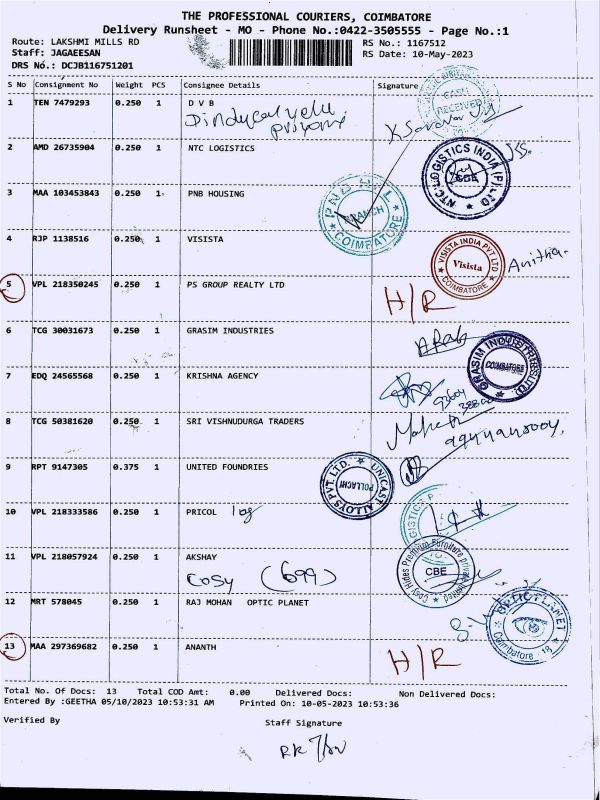 THE PROFESSIONAL COURIERS, COIMBATORE
Delivery Runsheet - MO - Phone No.:0422-3505555 - Page No.:1
Route: LAKSHMI MILLS RD RS No.: 1167512
Staff: JAGAEESAN RS Date: 10-May-2023
DRS No.: DCJB116751201
S No Consignment No Weight PCS Consignee Details Signature
1 TEN 7479293 0.250 1 D V B
CASH RECEIVED
2 AMD 26735904 0.250 1 NTC LOGISTICS
NTC LOGISTICS INDIA (P) LTD CBE
3 MAA 103453843 0.250 1 PNB HOUSING
BRANCH COIMBATORE
4 RJP 1138516 0.250 1 VISISTA
VISISTA INDIA PVT LTD Visista COIMBATORE Anitha
5 VPL 218350245 0.250 1 PS GROUP REALTY LTD
H/R
6 TCG 30031673 0.250 1 GRASIM INDUSTRIES
GRASIM INDUSTRIES LTD. COIMBATORE
7 EDQ 24565568 0.250 1 KRISHNA AGENCY
8 TCG 50381620 0.250 1 SRI VISHNUDURGA TRADERS
9 RPT 9147305 0.375 1 UNITED FOUNDRIES
UNICAST ALLOYS PVT. LTD. POLLACHI
10 VPL 218333586 0.250 1 PRICOL log
11 VPL 218057924 0.250 1 AKSHAY
Cosy (699)
Cosy Hides Premium Furniture private limited CBE
12 MRT 578045 0.250 1 RAJ MOHAN OPTIC PLANET
OPTIC PLANET Coimbatore - 18
13 MAA 297369682 0.250 1 ANANTH
H/R
Total No. Of Docs: 13 Total COD Amt: 0.00 Delivered Docs: Non Delivered Docs:
Entered By :GEETHA 05/10/2023 10:53:31 AM Printed On: 10-05-2023 10:53:36
Verified By Staff Signature